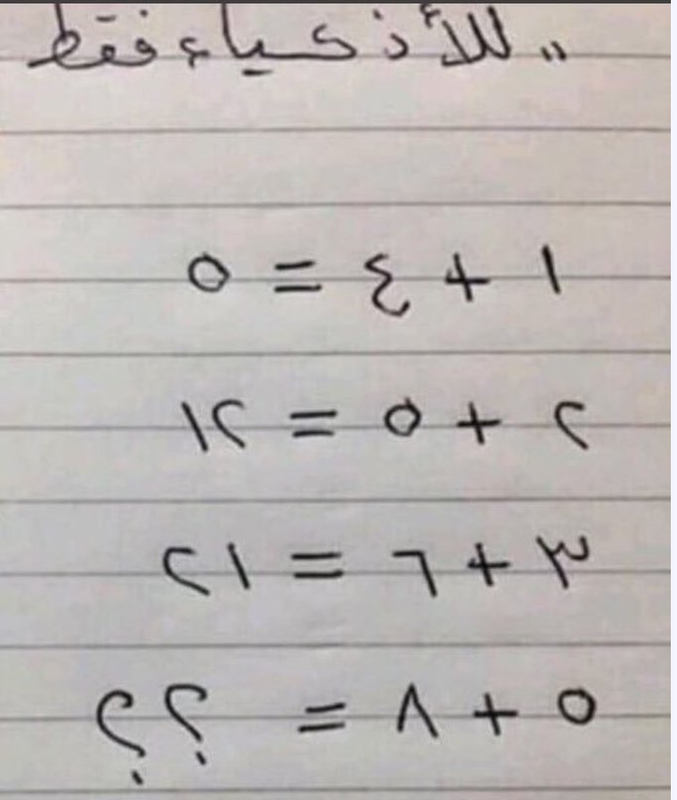 .. للأذكياء فقط
١ + ٤ = ٥
٢ + ٥ = ١٢
٣ + ٦ = ٢١
٥ + ٨ = ؟؟